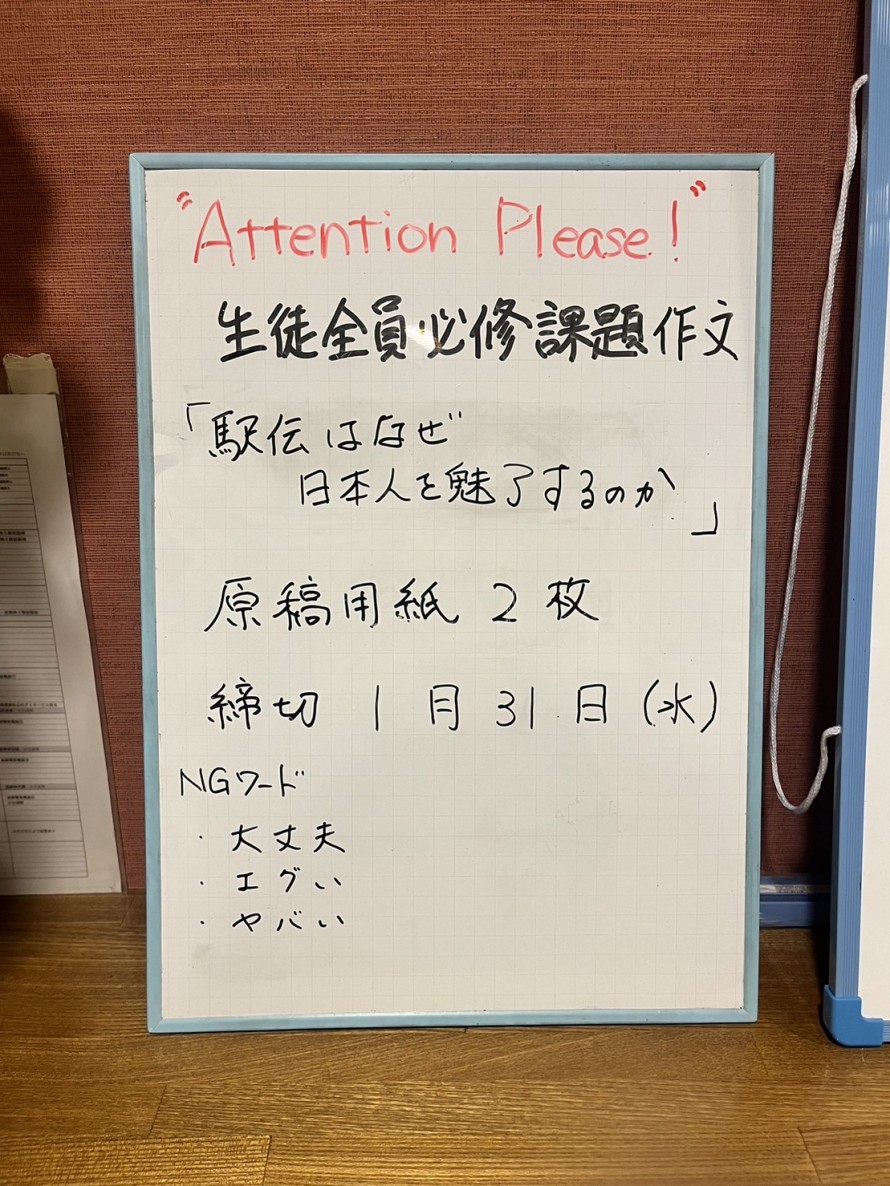 "Attention Please!"
生徒全員必修課題作文
「駅伝はなぜ
日本人を魅了するのか」
原稿用紙 2枚
締切 1月31日(水)
NGワード
・大丈夫
・エグい
・ヤバい